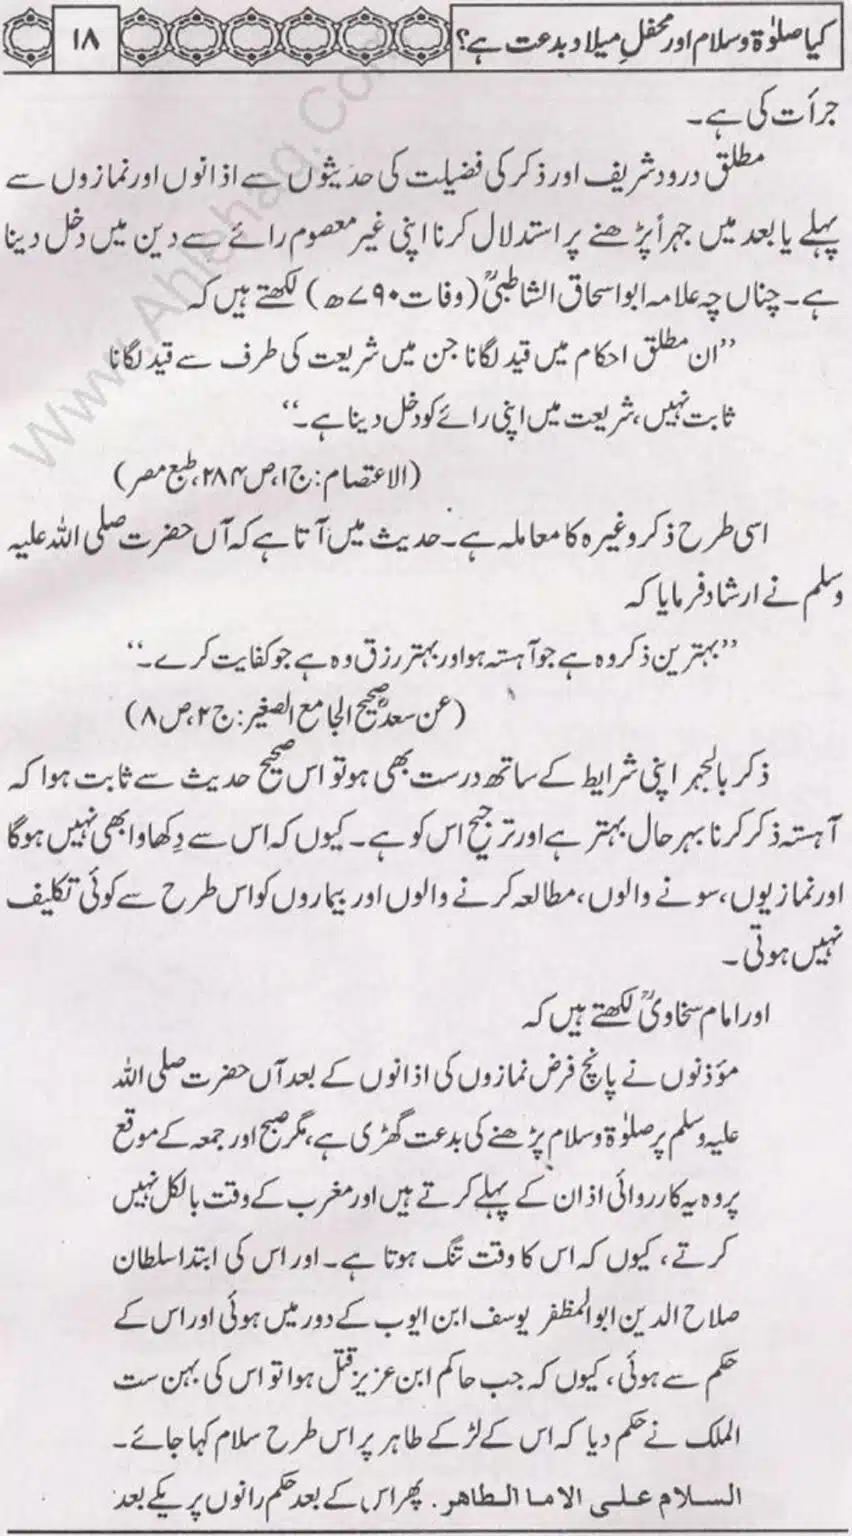 کیا صلوٰۃ و سلام اور محفلِ میلاد بدعت ہے؟ ۱۸
جرأت کی ہے۔
مطلق درود شریف اور ذکر کی فضیلت کی حدیثوں سے اذانوں اور نمازوں سے
پہلے یا بعد میں جہراً پڑھنے پر استدلال کرنا اپنی غیر معصوم رائے سے دین میں دخل دینا
ہے۔ چناں چہ علامہ ابو اسحاق الشاطبیؒ (وفات ۷۹۰ھ) لکھتے ہیں کہ
’’ان مطلق احکام میں قید لگانا جن میں شریعت کی طرف سے قید لگانا
ثابت نہیں، شریعت میں اپنی رائے کو دخل دینا ہے۔‘‘
(الاعتصام: ج۱، ص۲۸۴، طبع مصر)
اسی طرح ذکر وغیرہ کا معاملہ ہے۔ حدیث میں آتا ہے کہ آں حضرت صلی اللہ علیہ
وسلم نے ارشاد فرمایا کہ
’’بہترین ذکر وہ ہے جو آہستہ ہو اور بہتر رزق وہ ہے جو کفایت کرے۔‘‘
(عن سعدؓ صحیح الجامع الصغیر: ج۲، ص۸)
ذکر بالجہر اپنی شرایط کے ساتھ درست بھی ہو تو اس صحیح حدیث سے ثابت ہوا کہ
آہستہ ذکر کرنا بہر حال بہتر ہے اور ترجیح اس کو ہے۔ کیوں کہ اس سے دِکھاوا بھی نہیں ہوگا
اور نمازیوں، سونے والوں، مطالعہ کرنے والوں اور بیماروں کو اس طرح سے کوئی تکلیف
نہیں ہوتی۔
اور امام سخاویؒ لکھتے ہیں کہ
مؤذنوں نے پانچ فرض نمازوں کی اذانوں کے بعد آں حضرت صلی اللہ
علیہ وسلم پر صلوٰۃ و سلام پڑھنے کی بدعت گھڑی ہے، مگر صبح اور جمعہ کے موقع
پر وہ یہ کارروائی اذان کے پہلے کرتے ہیں اور مغرب کے وقت بالکل نہیں
کرتے، کیوں کہ اس کا وقت تنگ ہوتا ہے۔ اور اس کی ابتدا سلطان
صلاح الدین ابوالمظفر یوسف ابن ایوب کے دور میں ہوئی اور اس کے
حکم سے ہوئی، کیوں کہ جب حاکم ابن عزیز قتل ہوا تو اس کی بہن ست
الملک نے حکم دیا کہ اس کے لڑکے طاہر پر اس طرح سلام کہا جائے۔
السلام علی الاما الطاهر. پھر اس کے بعد حکم رانوں پر یکے بعد
Www.Ahlehaq.Com